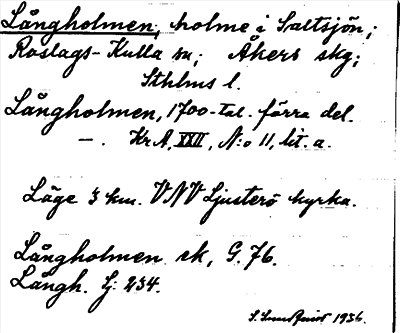 Långholmen, holme i Saltsjön;
Roslags-Kulla sn; Åkers skg;
Sthlms l.
Långholmen, 1700-tal. förra del.
—. Kr A, XXII, N:o 11, lit. a.
Läge 3 km. VNV Ljusterö kyrka.
Långholmen sk, G. 76.
Långh. Lj: 234.
S. 1936.